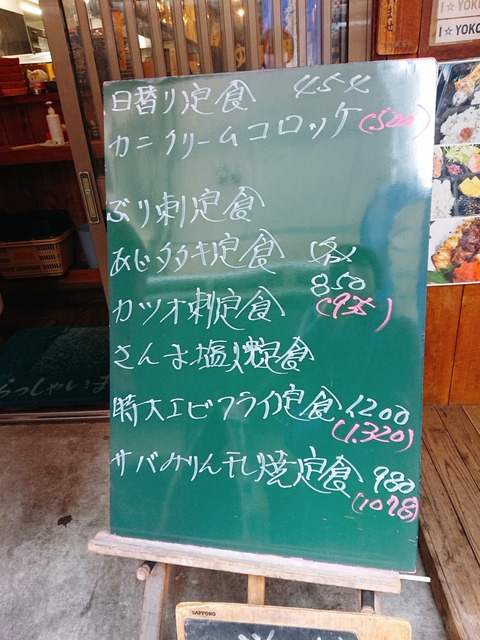 I☆YOKO
I☆YOKO
日替り定食 454
カニクリームコロッケ (500)
ぶり刺定食
あじタタキ定食 各
850
カツオ刺定食 (935)
さんま塩焼定食
特大エビフライ定食 1200
(1.320)
サバみりん干し焼定食 980
(1078)
らっしゃいま
SAPPORO